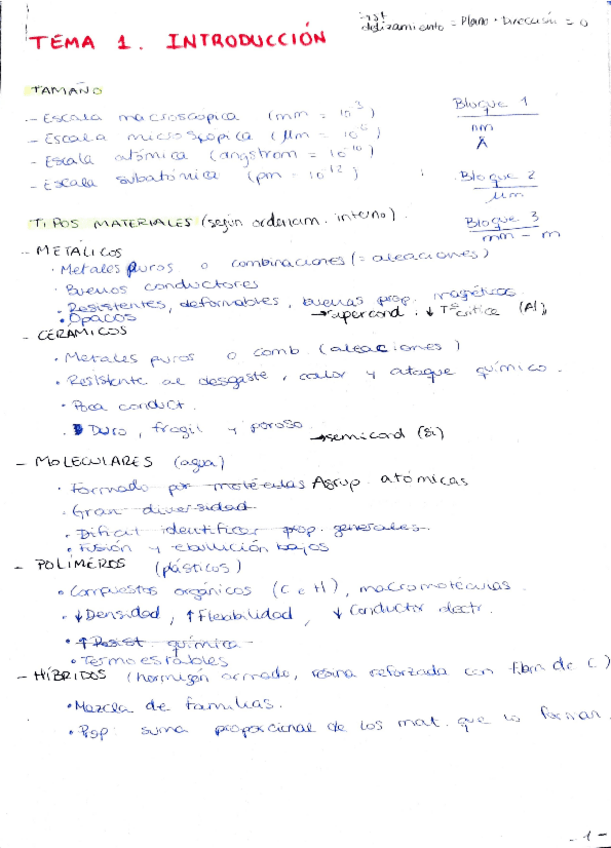 TEMA 1. INTRODUCCIÓN
inst deslizamiento = Plano · Dirección = 0
TAMAÑO
- Escala macroscópica (mm = 10^-3)
- Escala microscópica (μm = 10^-6)
- Escala atómica (angstrom = 10^-10)
- Escala subatómica (pm = 10^-12)
Bloque 1
nm
Å
Bloque 2
μm
Bloque 3
mm - m
TIPOS MATERIALES (según ordenam. interno).
- METÁLICOS
· Metales puros o combinaciones (= aleaciones)
· Buenos conductores
- Resistentes, deformables, buenas prop. magnéticas
• Opacos → supercond. ↓ Tª crítica (Al)
- CERÁMICOS
· Metales puros o comb. (aleaciones)
· Resistente al desgaste, calor y ataque químico.
· Poca conduct.
· Duro, fragil y poroso → semicond (Si)
- MOLECULARES (agua)
· Formado por moléculas Agrup. atómicas
· Gran diversidad
· Dificil identificar prop. generales.
• Fusión y ebullución bajos
- POLÍMEROS (plásticos)
• Compuestos orgánicos (C e H), macromoléculas.
· ↓ Densidad, ↑ Flexibilidad, ↓ Conductiv electr.
• ↑ Resist. química
• Termoestables
- HÍBRIDOS (hormigón armado, resina reforzada con fibra de C)
• Mezcla de familias.
• Prop: suma proporcional de los mat. que lo forman.
- 1 -